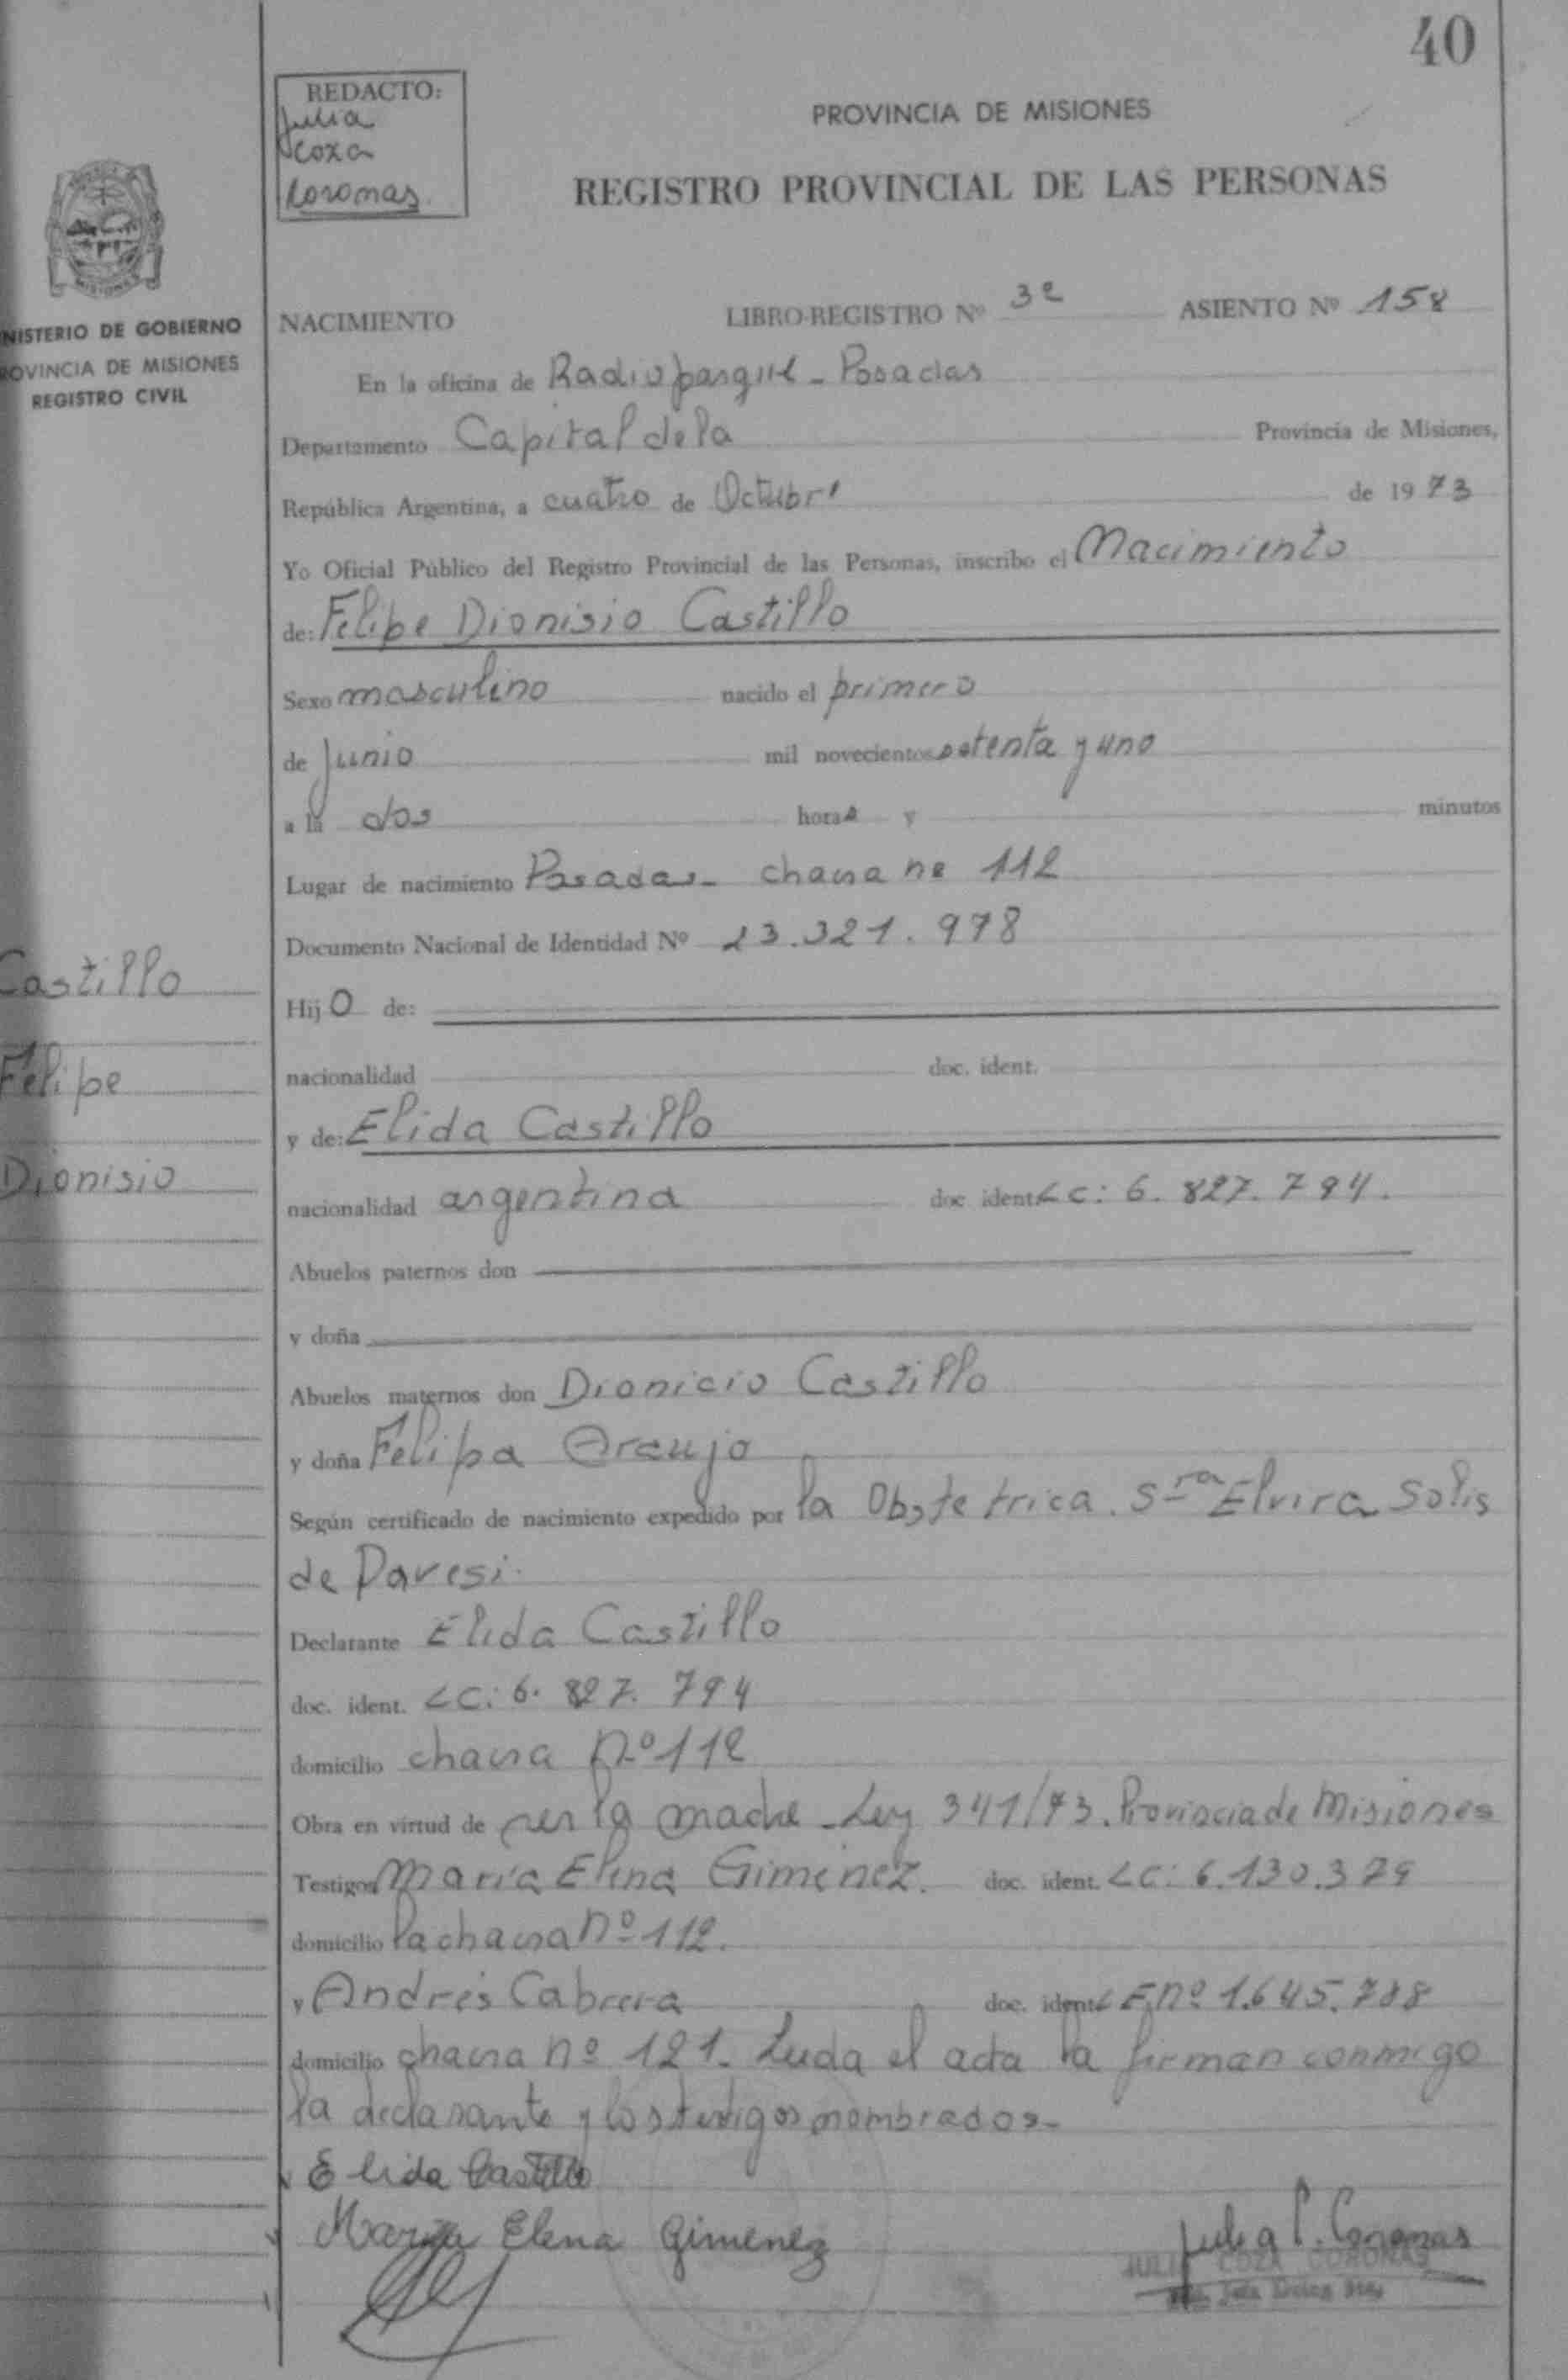 40
REDACTO:
Julia
Coza
Coronas.
PROVINCIA DE MISIONES
REGISTRO PROVINCIAL DE LAS PERSONAS
MISIONES
NISTERIO DE GOBIERNO
ROVINCIA DE MISIONES
REGISTRO CIVIL
NACIMIENTO LIBRO-REGISTRO Nº 3º ASIENTO Nº 158
En la oficina de Radioparque - Posadas
Departamento Capital de la Provincia de Misiones,
República Argentina, a cuatro de Octubre de 1973
Yo Oficial Público del Registro Provincial de las Personas, inscribo el Nacimiento
de: Felipe Dionisio Castillo
Sexo masculino nacido el primero
de Junio mil novecientos setenta y uno
a la dos horas y minutos
Lugar de nacimiento Posadas - chacra nº 112
Documento Nacional de Identidad Nº 23.321.978
Castillo
Hijo de:
Felipe
nacionalidad doc. ident.
y de: Elida Castillo
Dionisio
nacionalidad argentina doc. ident. LC: 6.827.794.
Abuelos paternos don
y doña
Abuelos maternos don Dionicio Castillo
y doña Felipa Araujo
Según certificado de nacimiento expedido por la Obstetrica. Sra Elvira Solis
de Davesi.
Declarante Elida Castillo
doc. ident. LC: 6.827.794
domicilio chacra Nº 112
Obra en virtud de ser la madre - Ley 341/73. Provincia de Misiones
Testigos María Elena Gimenez. doc. ident. LC: 6.130.379
domicilio la chacra Nº 112.
y Andrés Cabrera doc. ident. LE. nº 1.645.788
domicilio chacra nº 121. Leida el acta la firman conmigo
la declarante y los testigos nombrados-
Elida Castillo
Maria Elena Gimenez
Julia C. Coronas
JULIA COZA CORONAS